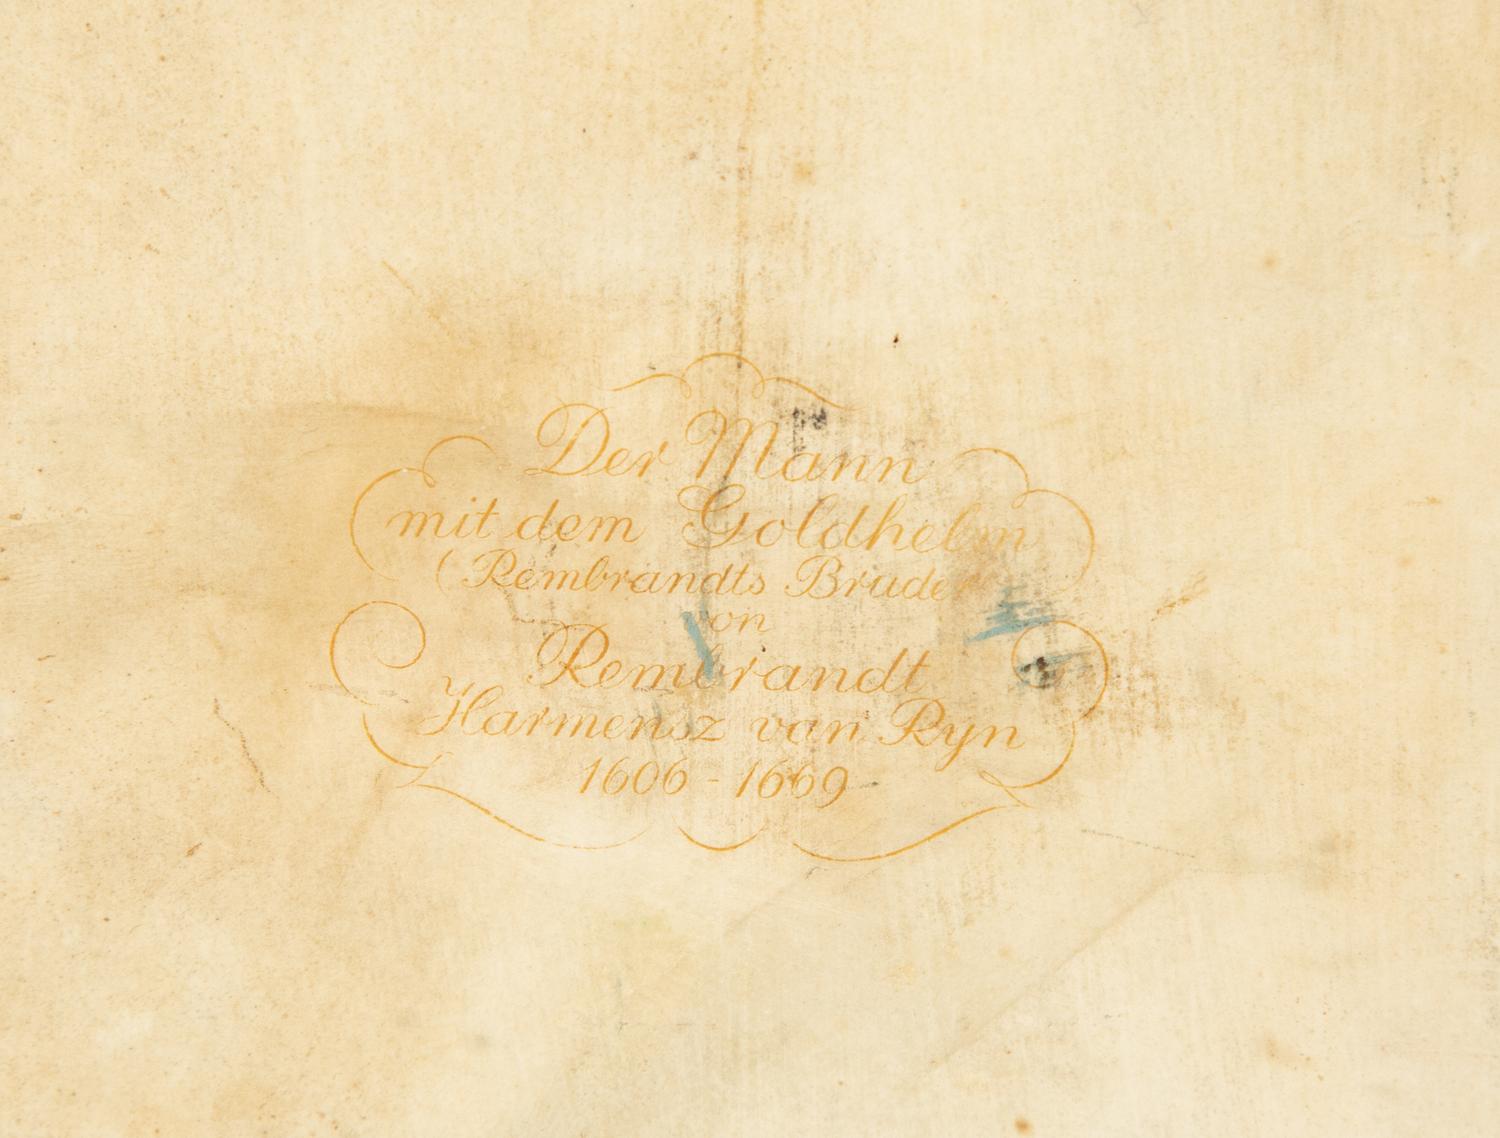 Der Mann
mit dem Goldhelm
(Rembrandts Bruder
von
Rembrandt
Harmensz van Ryn
1606 - 1669